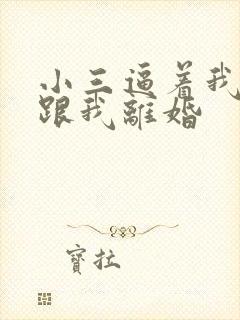 小三逼着我
跟我離婚
寶拉